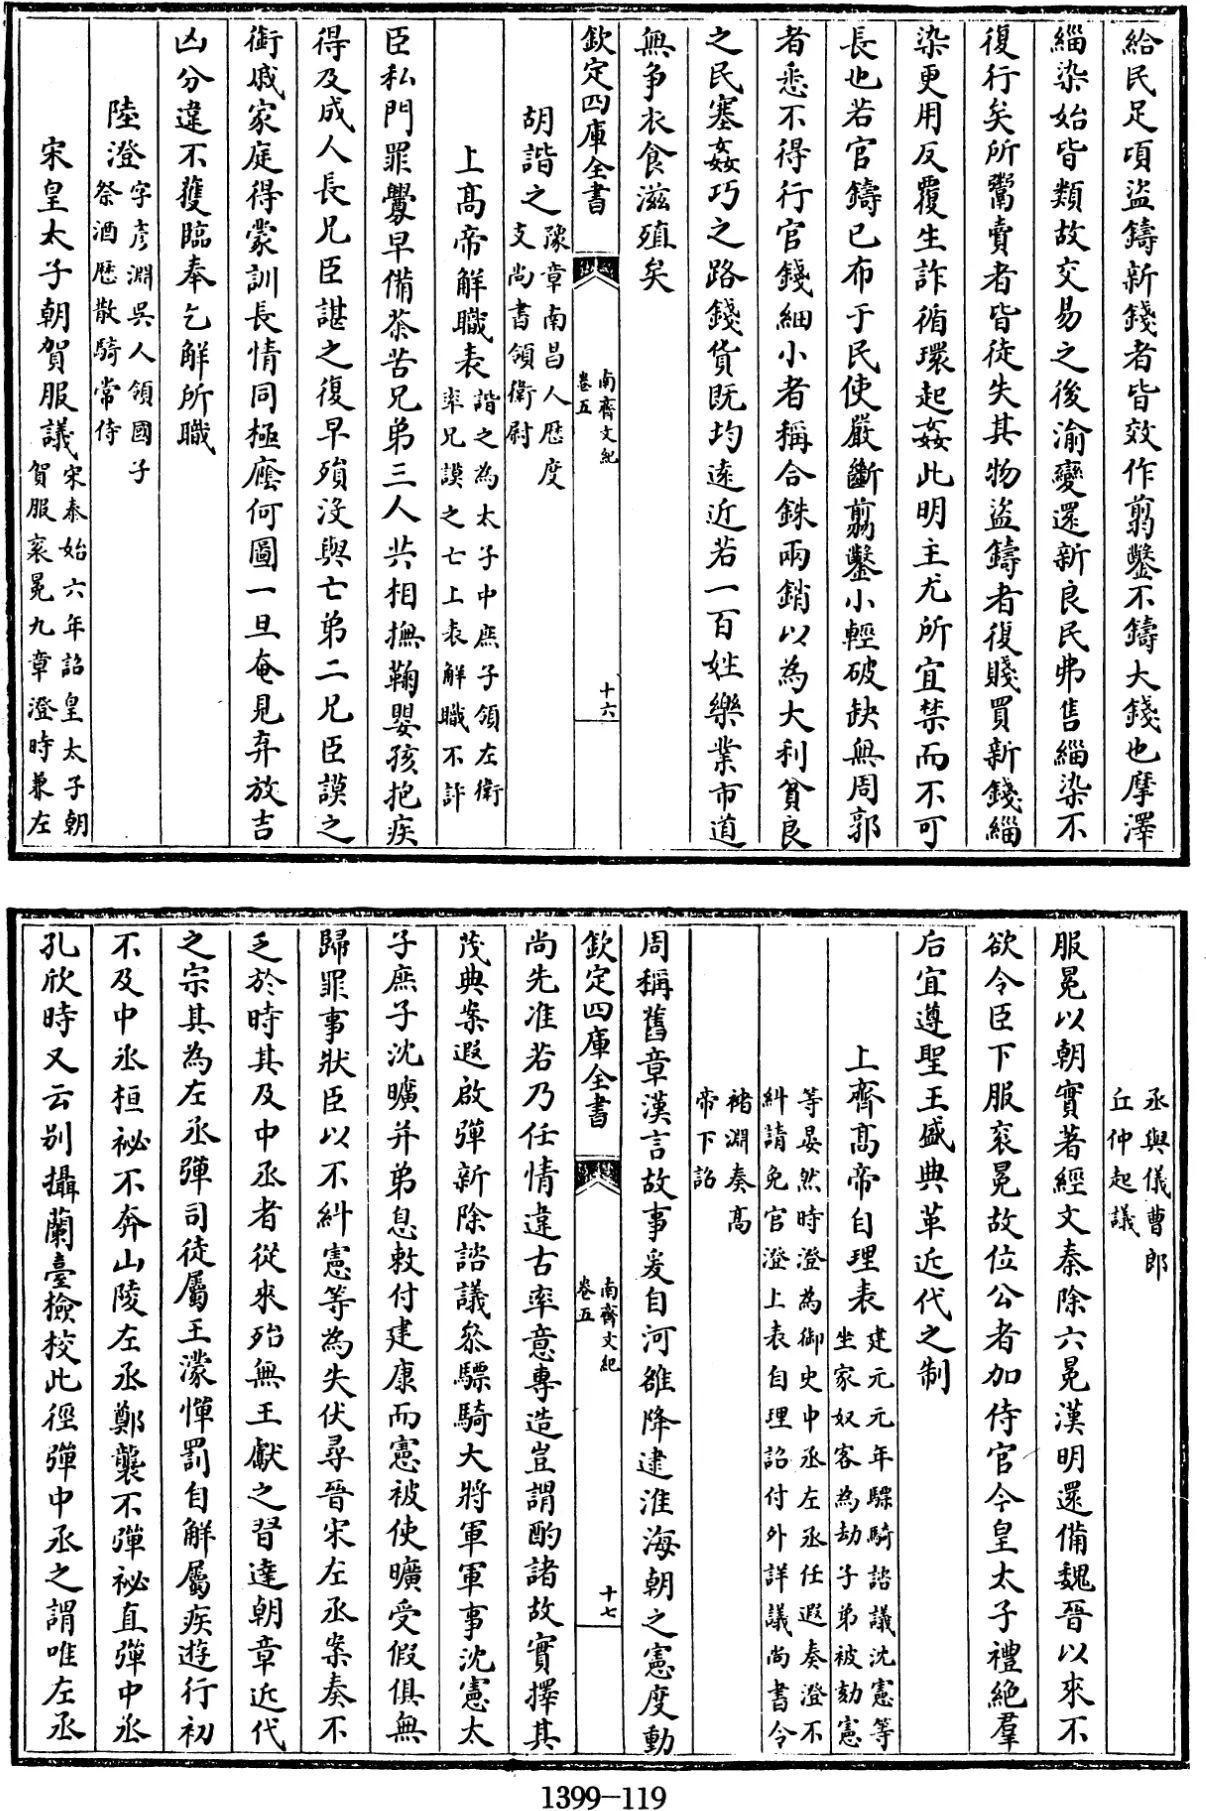 給民足頃盜鑄新錢者皆效作翦鑿不鑄大錢也摩澤
緇染始皆類故交易之後渝變還新良民弗售緇染不
復行矣所鬻賣者皆徒失其物盜鑄者復賤買新錢緇
染更用反覆生詐循環起姦此明主尤所宜禁而不可
長也若官鑄已布于民使嚴斷翦鑿小輕破缺無周郭
者悉不得行官錢細小者稱合銖兩銷以為大利貧良
之民塞姦巧之路錢貨既均遠近若一百姓樂業市道
無爭衣食滋殖矣
欽定四庫全書
南齊文紀
卷五
十六
胡諧之豫章南昌人歷度
支尚書領衛尉
上高帝解職表諧之為太子中庶子領左衛
率兄謨之亡上表解職不許
臣私門罪釁早備荼苦兄弟三人共相撫鞠嬰孩抱疾
得及成人長兄臣諶之復早殞沒與亡弟二兄臣謨之
銜戚家庭得蒙訓長情同極廕何圖一旦奄見弃放吉
凶分違不獲臨奉乞解所職
陸澄字彥淵吳人領國子
祭酒歷散騎常侍
宋皇太子朝賀服議宋泰始六年詔皇太子朝
賀服袞冕九章澄時兼左
丞與儀曹郎
丘仲起議
服冕以朝實著經文秦除六冕漢明還備魏晉以來不
欲令臣下服袞冕故位公者加侍官今皇太子禮絕羣
后宜遵聖王盛典革近代之制
上齊高帝自理表建元元年驃騎諮議沈憲等
坐家奴客為劫子弟被劾憲
等晏然時澄為御史中丞左丞任遐奏澄不
糾請免官澄上表自理詔付外詳議尚書令
褚淵奏高
帝下詔
周稱舊章漢言故事爰自河雒降逮淮海朝之憲度動
欽定四庫全書
南齊文紀
卷五
十七
尚先准若乃任情違古率意專造豈謂酌諸故實擇其
茂典案遐啟彈新除諮議叅驃騎大將軍軍事沈憲太
子庶子沈曠并弟息敕付建康而憲被使曠受假俱無
歸罪事狀臣以不糾憲等為失伏尋晉宋左丞案奏不
乏於時其及中丞者從來殆無王獻之習達朝章近代
之宗其為左丞彈司徒屬王濛憚罰自解屬疾遊行初
不及中丞桓祕不奔山陵左丞鄭襲不彈祕直彈中丞
孔欣時又云别攝蘭臺檢校此徑彈中丞之謂唯左丞
1399—119